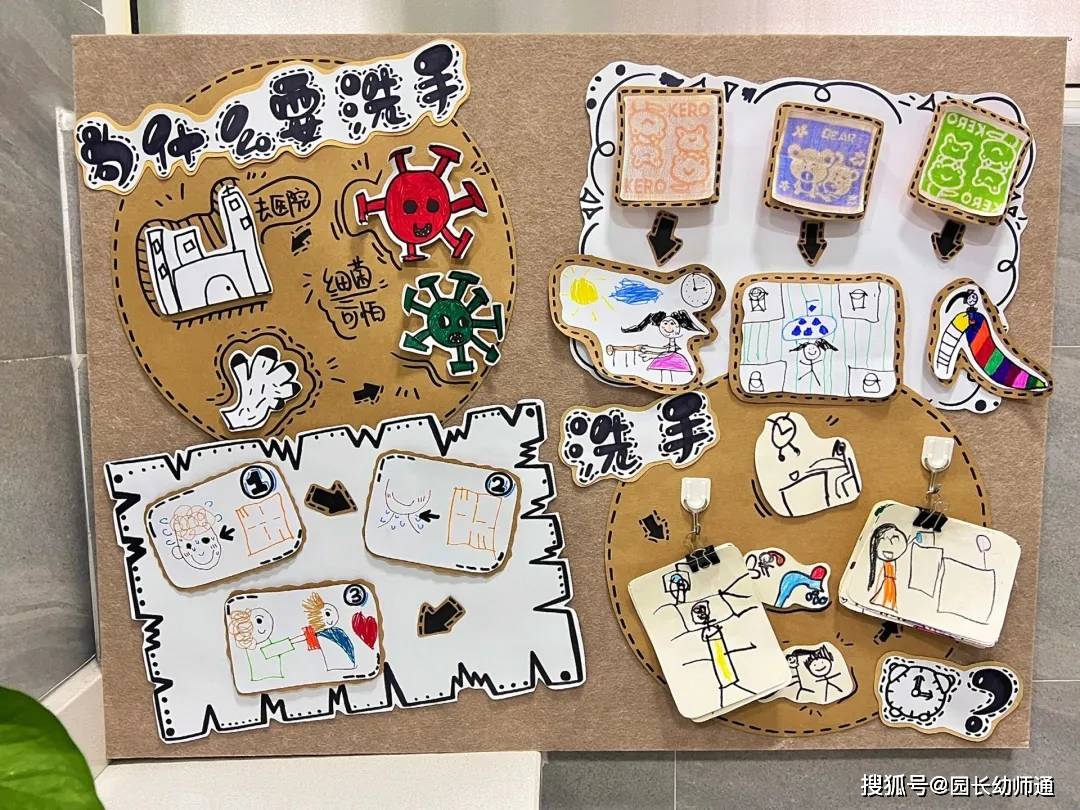 为什么要洗手
去医院
细菌
可怕
KERO
KERO
BEAR
KERO
KERO
洗手
?
1
2
3
搜狐号@园长幼师通